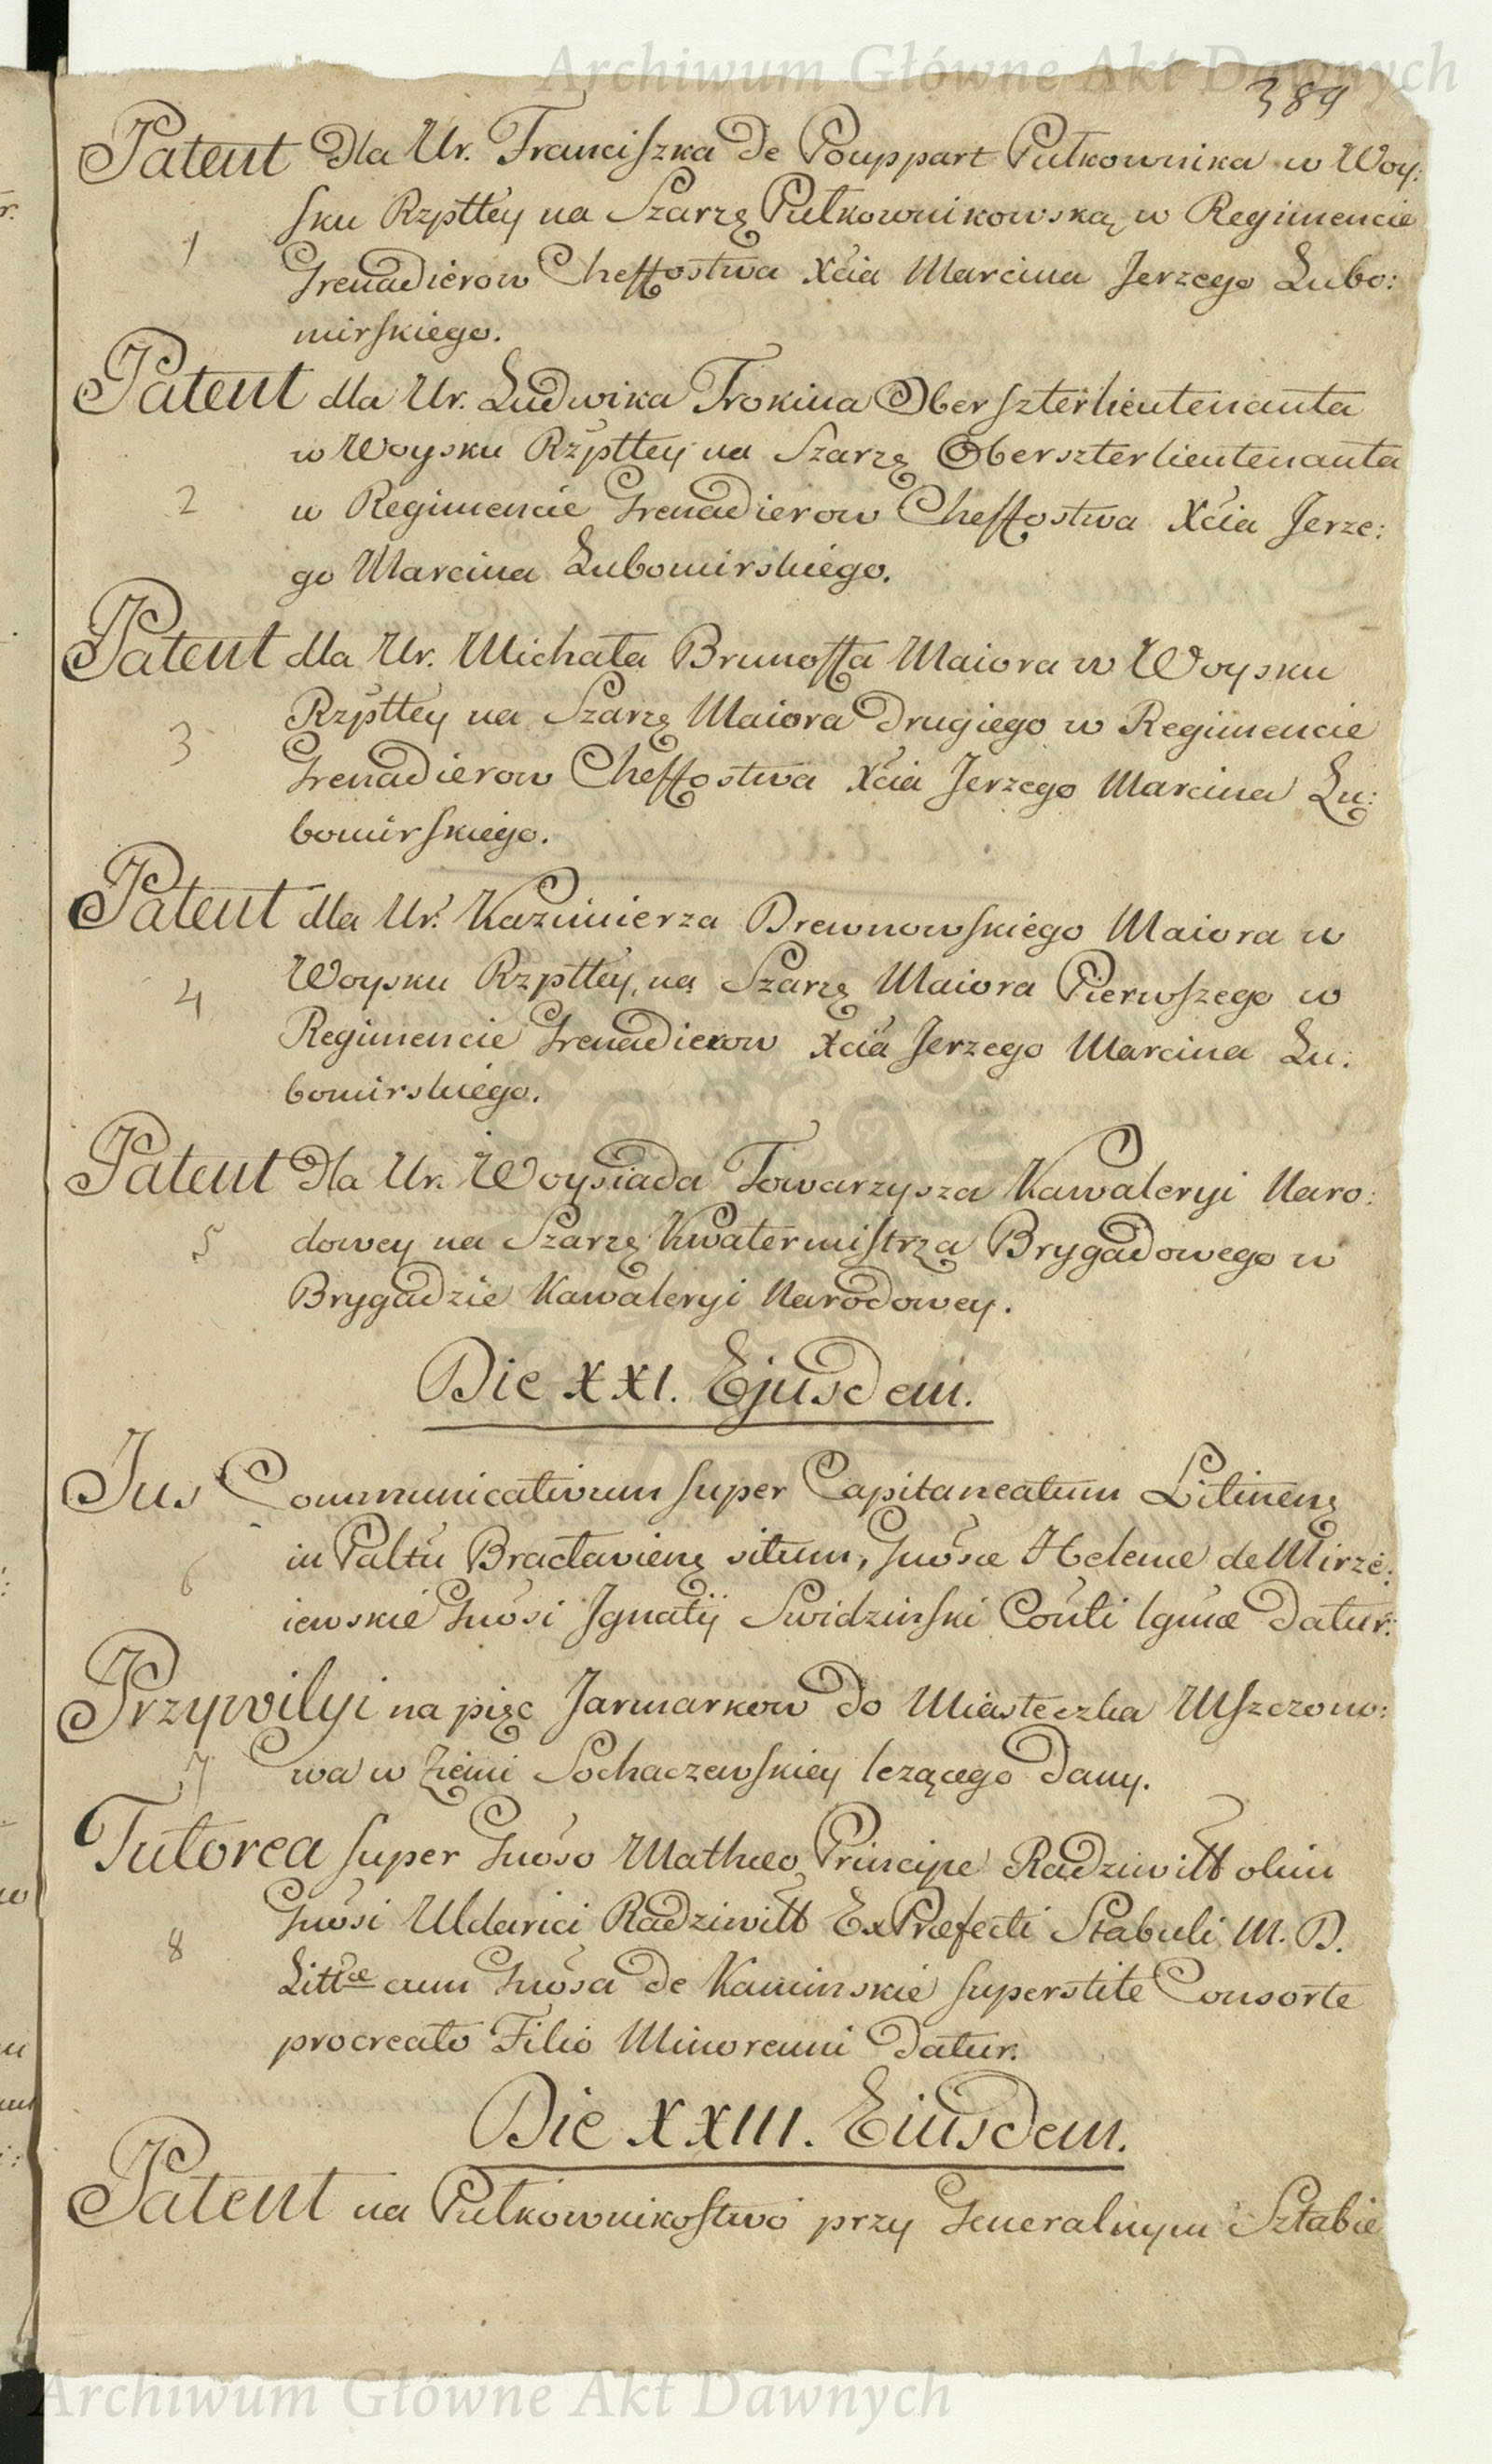 Archiwum Główne Akt Dawnych
389
Patent dla Ur. Franciszka de Pouppart Pułkownika w Woy:
sku Rzpttey na Szarzę Pułkownikowską w Regimencie
1
Grenadierow Cheffostwa Xcia Marcina Jerzego Lubo:
mirskiego.
Patent dla Ur. Ludwika Trokina Oberszterlieutenanta
w Woysku Rzpttey na Szarzę Oberszterlieutenanta
2
w Regimencie Grenadierow Cheffostwa Xcia Jerze:
go Marcina Lubomirskiego.
Patent dla Ur. Michała Brunoffa Maiora w Woysku
Rzpttey na Szarzę Maiora drugiego w Regimencie
3
Grenadierow Cheffostwa Xcia Jerzego Marcina Lu:
bomirskiego.
Patent dla Ur. Kazimierza Drewnowskiego Maiora w
Woysku Rzpttey na Szarzę Maiora Pierwszego w
4
Regimencie Grenadierow Xcia Jerzego Marcina Lu:
bomirskiego.
Patent dla Ur. Woysiada Towarzysza Kawaleryi Naro:
dowey na Szarzę Kwatermistrza Brygadowego w
5
Brygadzie Kawaleryi Narodowey.
Die XXI. Ejusdem.
Jus Communicativum super Capitaneatum Litinenę
in Paltu Bracłavienę situm, Gnosæ Helenæ de Mirze:
6
iewskie Gnosi Jgnatij Swidzinski Conti lgmæ datur.
Przywilyi na pięc Jarmarkow do Miasteczka Mszczono:
7
wa w Ziemi Sochaczewskiey lezącego dany.
Tutorea super Gnoso Mathæo Principe Radziwiłł olim
Gnosi Uldarici Radziwiłł Ex Præfecti Stabuli M. D.
8
Littæ cum Gnosa de Kaminskie superstite Consorte
procreato Filio Minorenni datur.
Die XXIII. Eiusdem.
Patent na Pułkownikostwo przy Generalnym Sztabie
Archiwum Główne Akt Dawnych